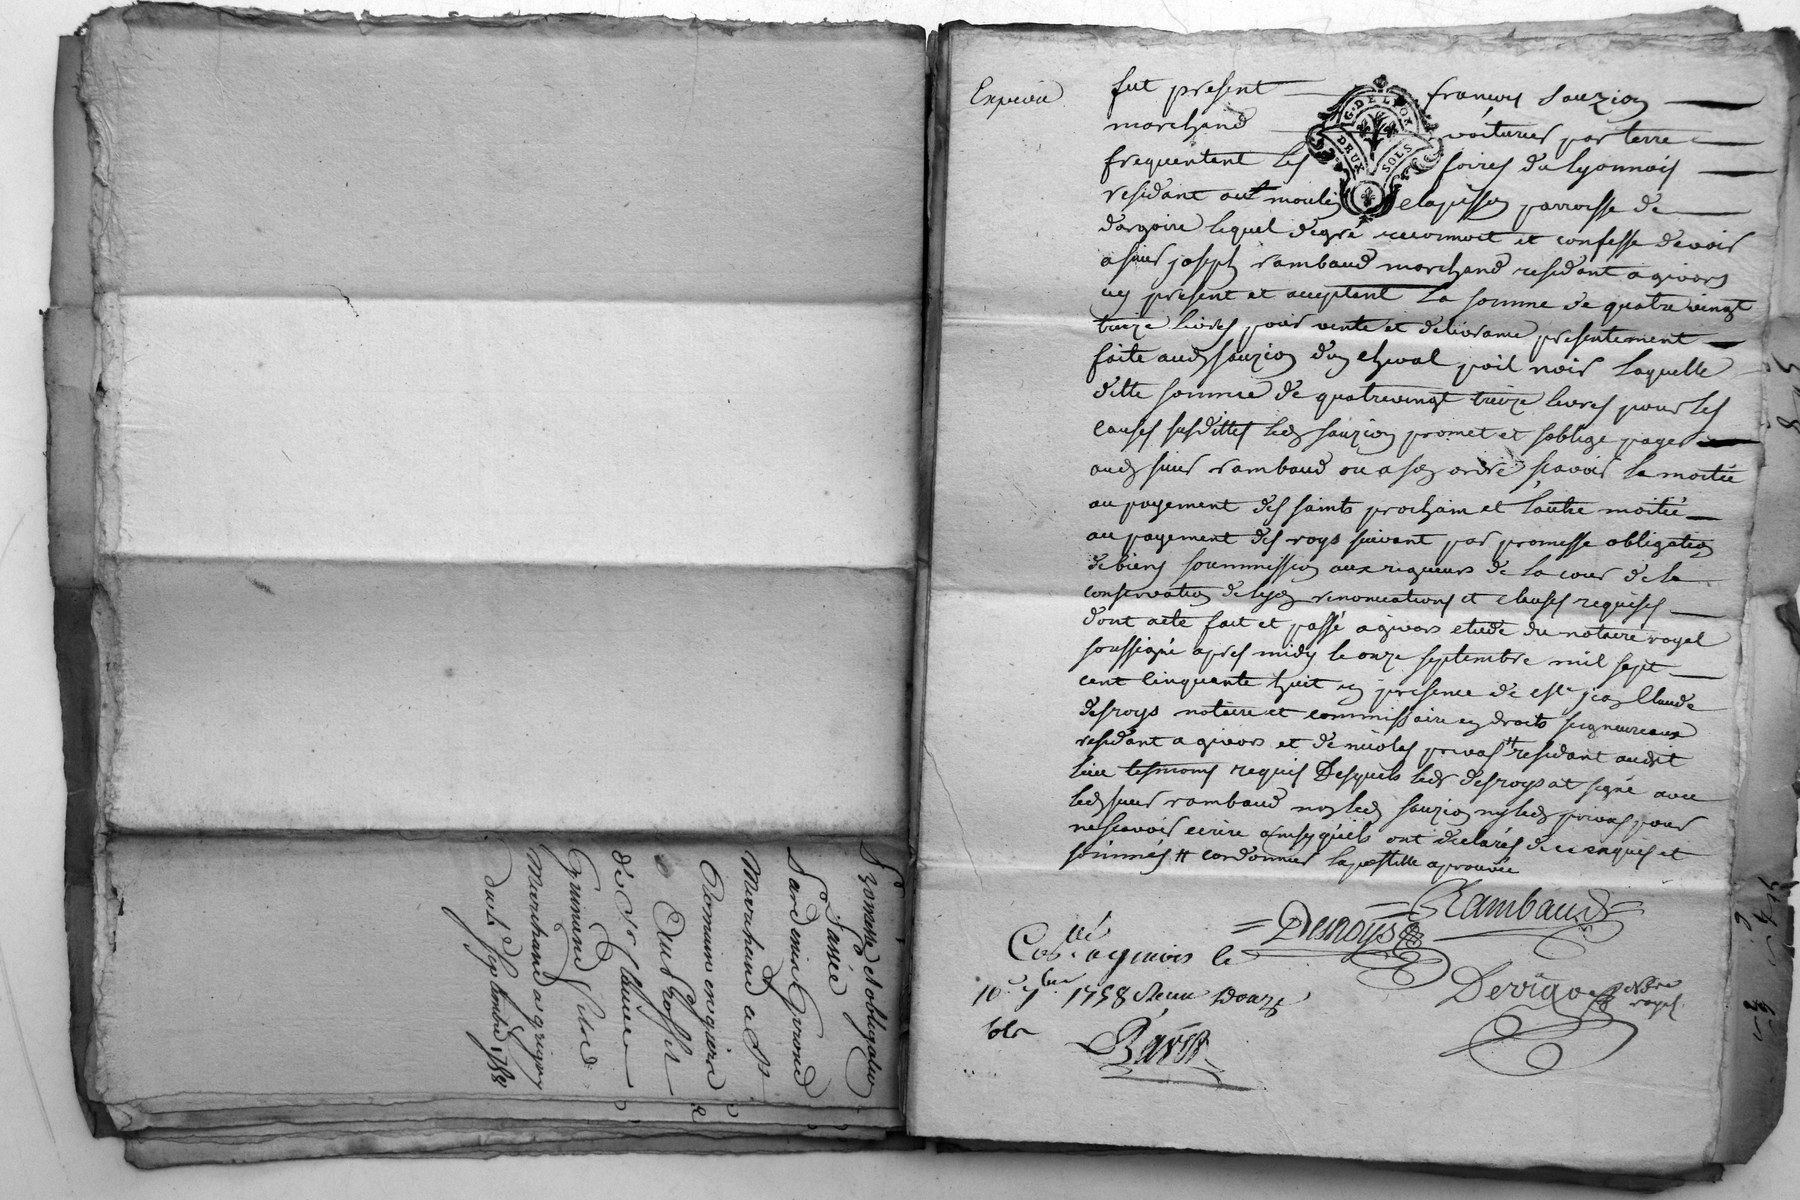 Promesse et obligation
Passée
Sardemin Grand
Marchand a St
Romain en giere
de St
Marchand a grigny
du 4e Septembre 1758
Expedié
fut present françois Sauzion
marchand voiturier par terre
frequentant les foires du lyonnois
G. DE LYON
DEUX SOLS
residant au moulin parroisse de
dargoire lequel degré reconnoit et confesse devoir
a sieur joseph rambaud marchand residant a givors
icy present et acceptant la somme de quatre vingt
treize livres pour vente et delivrance presentement
faite aud Sauzion d'un cheval poil noir laquelle
ditte somme de quatrevingt treize livres pour les
causes susdittes led Sauzion promet et soblige payer
aud sieur rambaud ou a son ordre scavoir la moitié
au payement des saints prochain et l'autre moitié
au payement des roys suivant par promesse obligation
de biens soummission aux rigueurs de la cour de la
conservation de lyon renonciations et clauses requises
dont acte fait et passé a givors etude du notaire royal
soussigné apres midy le onze septembre mil sept
cent cinquante huit en presence de jean Claude
desroys notaire et commissaire en droits seigneuriaux
residant a givors et de nicolas privas # residant audit
lieu tesmoins requis desquels led desroys at signé avec
led sieur rambaud non led Sauzion ny led privas pour
ne scavoir ecrire ainsy quils ont declarés de ce enquis et
sommés # cordonnier lapostille aprouvée
Rambaud
Desroys
Devigo Nore
royal
Collé a givors le
10e 7bre 1758 Recu Douze
sols
Bavot